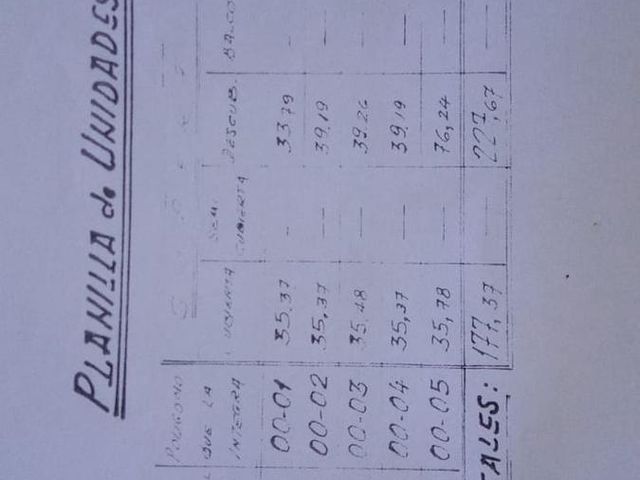 PLANILLA de UNIDADES
POLIGONO QUE LA INTEGRA CUBIERTA SEMI CUBIERTA DESCUB. BALCO
00-01 35,37 - 33,79 -
00-02 35,37 - 39,19 -
00-03 35,48 - 39,26 -
00-04 35,37 - 39,19 -
00-05 35,78 - 76,24 -
TALES: 177,37 - 227,67 -